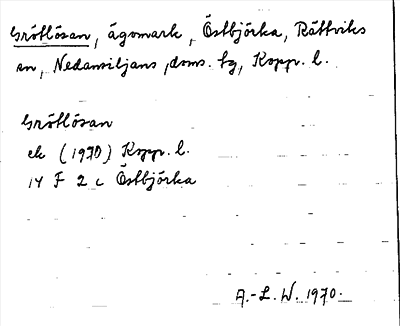 Grötlösan, ägomark, Östbjörka, Rättviks
sn, Nedansiljans doms. tg, Kopp. l.
Grötlösan
ek (1970) Kopp. l.
14 F 2 c Östbjörka
A.-L. W. 1970.